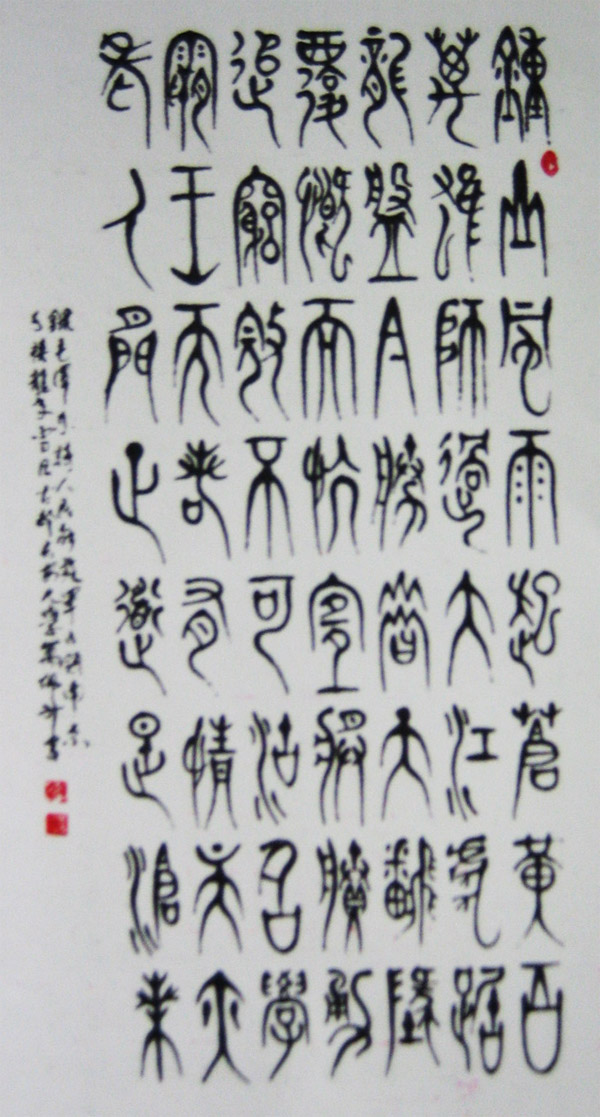 鍾山風雨起蒼黃百
萬雄師過大江虎踞
龍盤今勝昔天翻地
覆慨而慷宜將剩勇
追窮寇不可沽名學
霸王天若有情天亦
老人間正道是滄桑
錄毛澤東詩人民解放軍占領南京